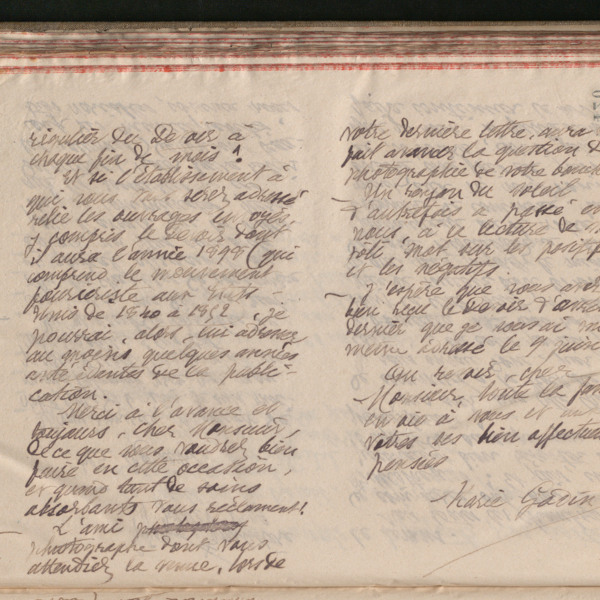 régulier du Devoir à
chaque fin de mois !
Et si l'Établissement à
que vous serez adressé
relie les ouvrages envoyés,
y compris le Devoir dont
il aura l'année 1898 (qui
comprend le mouvement
fouriériste aux États-
Unis de 1840 à 1852, je
pourrai, alors, lui adresser
au moins quelques années
antécédentes de la publi-
cation.
Merci à l'avance et
toujours, cher Monsieur,
de ce que vous voudrez bien
faire en cette occasion,
et quand tant de soins
absorbants vous réclament !
L'ami
photographe dont vous
attendiez la venue, lors de
votre dernière lettre, aura
fait avancer la question de
photographie de votre
Un rayon du soleil
d'autrefois a passé en
nous, à la lecture de
mot sur les positifs
et les négatifs.
J'espère que vous avez
bien reçu le Devoir d'
dernier que je vous ai
même adressé le 9 juin
Au revoir, cher
Monsieur, toute la
envoie à vous et
vôtres ses bien
pensées
Marie Godin